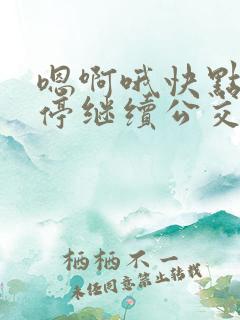 嗯啊哦快點
停继續公交
栖栖不一
未经同意禁止转载